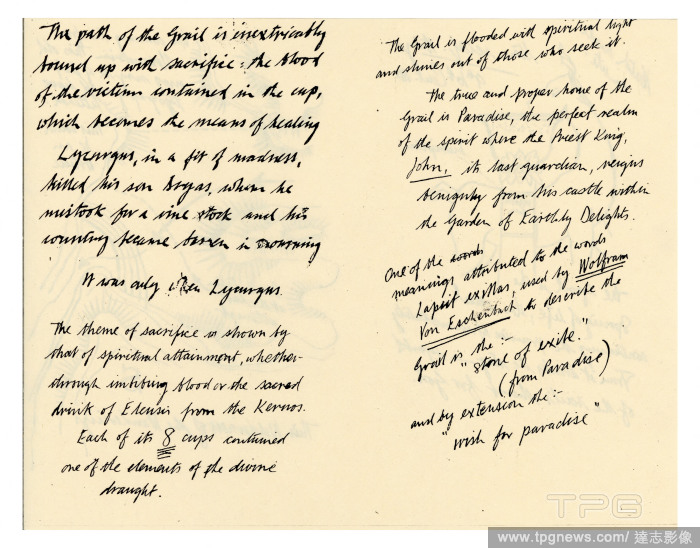 The path of the Grail is inextricably
bound up with sacrifice: the blood
of the victim contained in the cup,
which becomes the means of healing
Lycurgus, in a fit of madness,
killed his son Dryas, whom he
mistook for a vine stock and his
country became barren in mourning
It was only when Lycurgus
The theme of sacrifice is shown by
that of spiritual attainment, whether
through imbibing blood or the sacred
drink of Eleusis from the Kernos.
Each of its 8 cups contained
one of the elements of the divine
draught.
The Grail is flooded with spiritual light
and shines out of those who seek it.
The true and proper home of the
Grail is Paradise, the perfect realm
of the spirit where the Priest King,
John, its last guardian, reigns
benignly from his castle within
the Garden of Earthly Delights.
One of the words
meanings attributed to the words
Lapsit exillas, used by Wolfram
Von Eschenbach to describe the
Grail is the :-
"stone of exile."
(from Paradise)
and by extension the :-
"wish for paradise"
TPG
www.tpgnews.com/ 達志影像